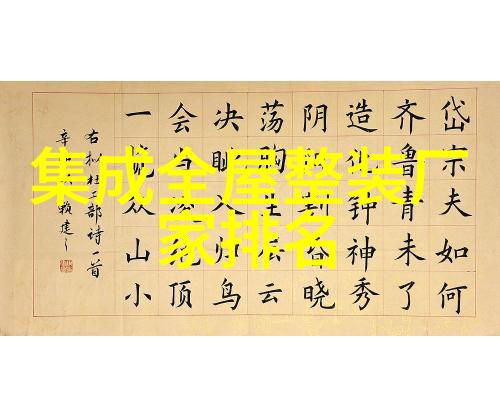 集成全屋整装厂
家排名
岱宗夫如何
齐鲁青未了
造化钟神秀
阴割昏晓
荡胸生层云
决眦入归鸟
会当顶
一览众山小
右拟杜工部诗一首
辛 赖建